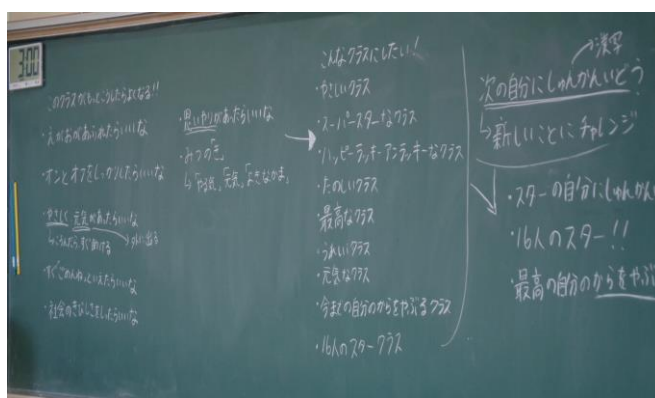 3:00
このクラスがもっとこうしたらよくなる!!
・えがおがあふれたらいいな
・オンとオフをしっかりしたらいいな
・やさしく元気があったらいいな
すぐ助ける
・すぐごめんねといえたらいいな
・社会のきびしさをしったらいいな
・思いやりがあったらいいな
・みつの「き」
↳「やる気」「元気」
→
こんなクラスにしたい!
・やさしいクラス
・スーパースターなクラス
・ハッピーラッキーアンラッキーなクラス
・たのしいクラス
・最高なクラス
・うれいいクラス
・元気なクラス
・今までの自分のからをやぶるクラス
・16人のスタークラス
→漢字
次の自分にしゅんかんいどう
↳新しいことにチャレンジ
・スターの自分にしゅんかん
・16人のスター!!
・最高の自分のからをやぶ